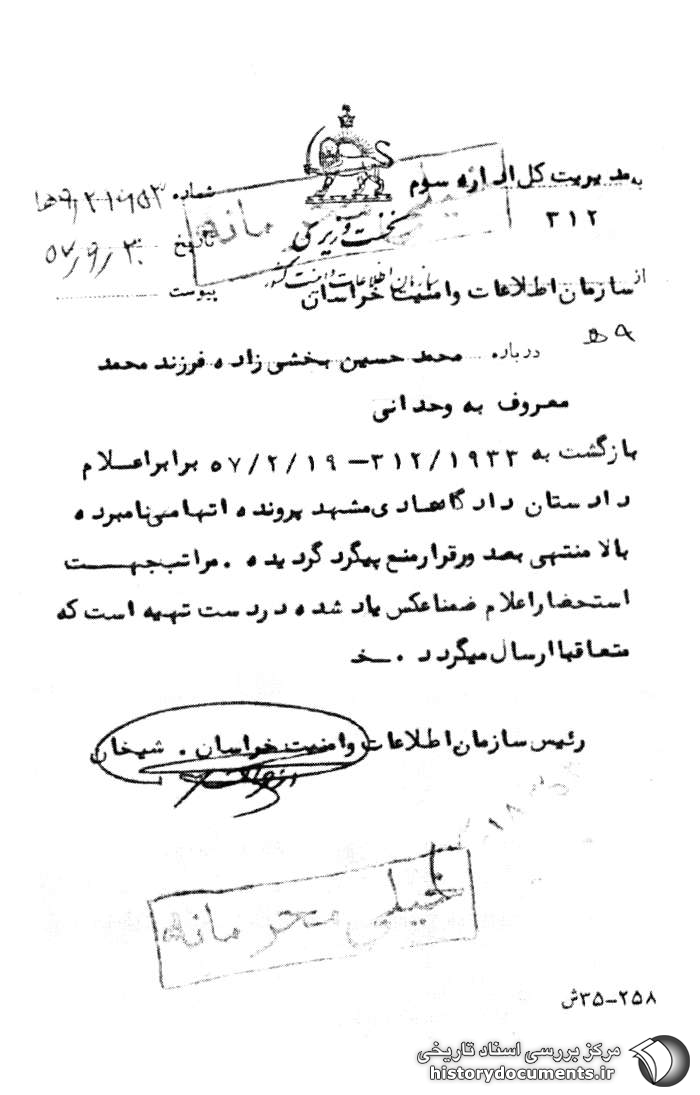 به مدیریت کل اداره سوم
۳۱۲
نخست وزیری
سازمان اطلاعات و امنیت کشور
شماره
تاریخ ۵۷/۹/۳۰
پیوست
خیلی محرمانه
از سازمان اطلاعات وامنیت خراسان
درباره محمد حسین بخشی زاده فرزند محمد
معروف به وحدانی
بازگشت به ۳۱۲/۱۹۳۳ – ۵۷/۲/۱۹ برابراعلام
دادستان دادگاههای مشهد پرونده اتهامی نامبرده
بالا منتهی بصدور قرار منع پیگرد گردیده . مراتب جهت
استحضار اعلام ضمنا عکس یاد شده در دست تهیه است که
متعاقبا ارسال میگردد . خ
رئیس سازمان اطلاعات وامنیت خراسان . شیخان
خیلی محرمانه
۳۵-۲۵۸ش
مرکز بررسی اسناد تاریخی
historydocuments.ir